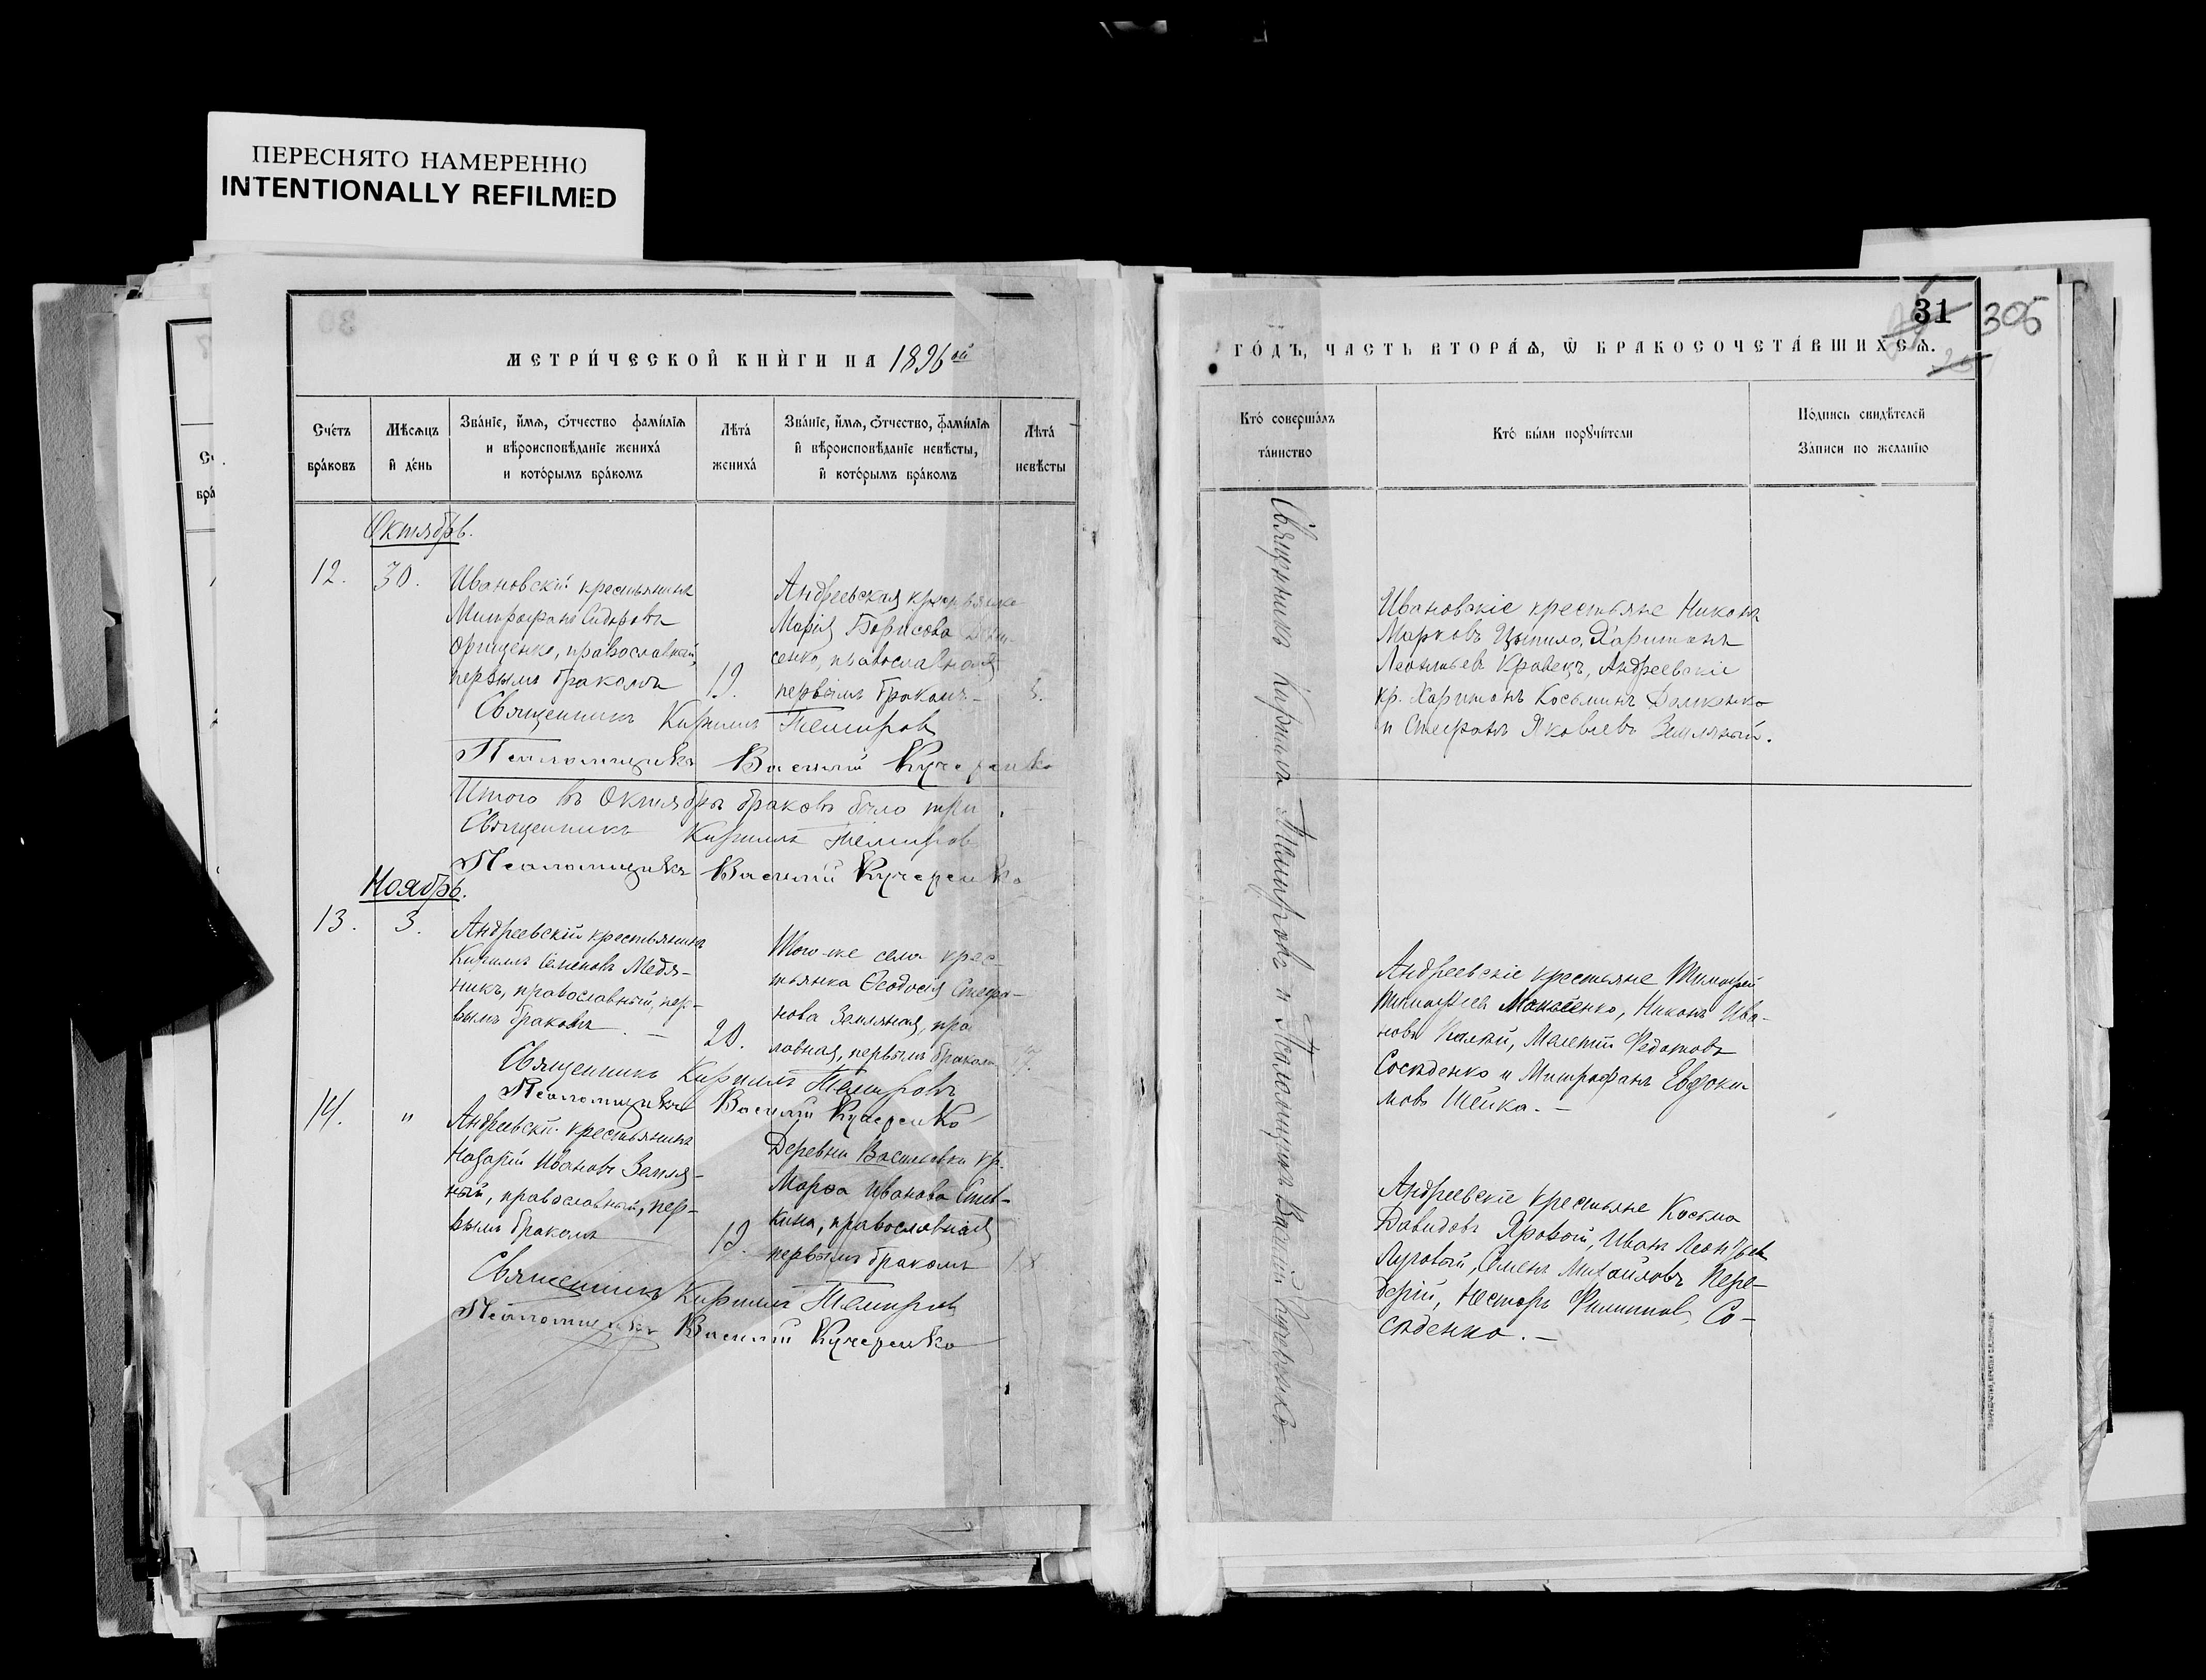 ПЕРЕСНЯТО НАМЕРЕННО
INTENTIONALLY REFILMED
МЕТРИ́ЧЕСКОЙ КНИ́ГИ НА 1896 ой
Сче́тъ бра́ковъ
Мѣсяцъ и де́нь
Зва́нїе, и́мя, ѻ́тчество фами́лїя и вѣроисповѣ́данїе жениха́ и кото́рымъ бра́комъ
Лѣта́ жениха́
Зва́нїе, и́мя, ѻ́тчество, фами́лїя и вѣроисповѣ́данїе невѣ́сты, и кото́рымъ бра́комъ
Лѣта́ невѣ́сты
Октябрь.
12. 30.
Ивановскій крестьянинъ
Митрофанъ Сидоровъ
Орищенко, православный,
первымъ бракомъ
19.
Андреевская крестьянка
Марія Борисова
сенко, православная
первымъ бракомъ
Священникъ Кириллъ Темировъ
Псаломщикъ Василій Кучеренко
Итого въ Октябрѣ браковъ было три.
Священникъ Кириллъ Темировъ
Псаломщикъ Василій Кучеренко
Ноябрь.
13. 3.
Андреевскій крестьянинъ
Кириллъ Семеновъ Медя-
никъ, православный, пер-
вымъ бракомъ. —
20.
Того-же села крес-
тьянка Ѳеодосія Стефа-
нова Земляная, пра
лавная, первымъ бракомъ
Священникъ Кириллъ Темировъ
Псаломщикъ Василій Кучеренко
14. "
Андреевскій крестьянинъ
Назарій Ивановъ Земля-
ный, православный, пер-
вымъ бракомъ
19.
Деревни Васильевки кр.
Марѳа Иванова
кина, православная
первымъ бракомъ
Священникъ Кириллъ Темировъ
Псаломщикъ Василій Кучеренко
31
305
ГО́ДЪ, ЧАСТЬ ВТОРА́Я, Ѡ БРАКОСОЧЕТА́ВШИХСЯ.
Кто́ соверша́лъ та́инство
Кто́ бы́ли порꙋчи́тели
По́дпись свидѣ́телей За́писи по жела́нїю
Священникъ Кириллъ Темировъ и Псаломщикъ Василій Кучеренко.
Ивановскіе крестьяне Никонъ
Марковъ Цыпило, Харитонъ
Леонтьевъ Кравецъ, Андреевскіе
кр. Харитонъ Косьминъ
и Стефанъ Яковлевъ Земляный.
Андреевскіе крестьяне Тимофей
Тимофеевъ Моисеенко, Никонъ Ива-
новъ Калній, Мелетій Федотовъ
Сосѣденко и Митрофанъ Евдоки-
мовъ Шейка. —
Андреевскіе крестьяне Косьма
Давидовъ Яровой, Иванъ Леонтьев
Луговый, Семенъ Михайловъ Пере-
дерій, Несторъ Филиппов, Со-
сѣденко. —